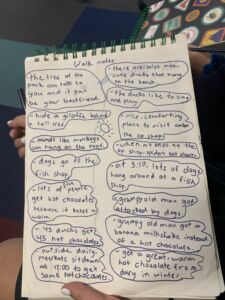 Walk notes
the tree at the
park can talk to
you and it can
be your bestfriend.
- hide a giraffe behind
a tall tree
- animals like monkeys
can hang on the roof.
- dogs go to the
fish shop.
- lots of people
get hot chocolates
because it keeps u
warm.
- 45 ducks get
45 hot chocolates
- outside daily
meerkats sit down
at 12:00 to get
some hot chocolates.
- there are also nice
cute ducks that hang
on the beach
- the ducks like to sing
and play.
- nice, comforting
place to visit called
the op shop!
- when no ones at the
op shop, spiders eat sheets.
- at 3:10, lots of dogs
hang around at a fish
shop.
- grumpy old man got
attacked by dogs
- grumpy old man got a
banana milkshake instead
of a hot chocolate.
- get a great, warm
hot chocolate from
dairy in winter.